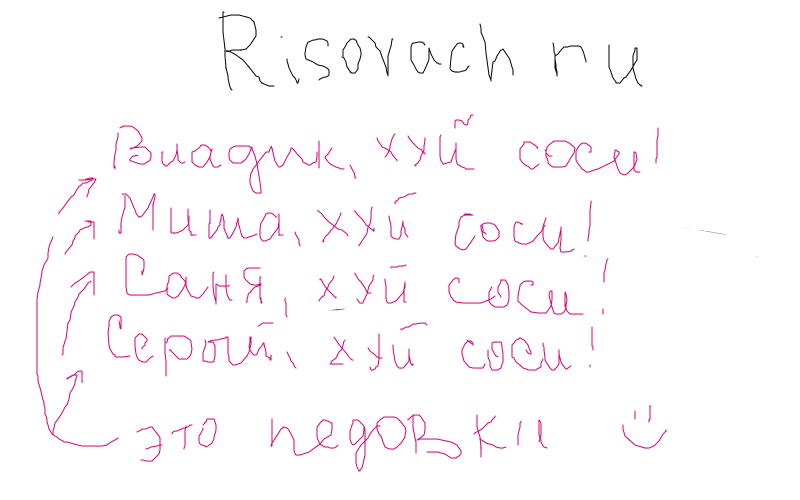 Risovach ru
Владик, хуй соси!
Миша, хуй соси!
Саня, хуй соси!
Серый, хуй соси!
это педовки